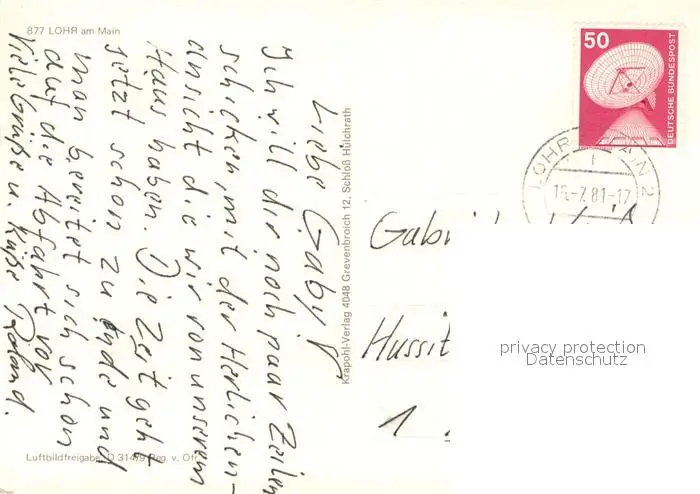 877 LOHR am Main
Liebe Gaby!
Ich will dir noch paar Zeilen
schicken, mit der Herlichen-
ansicht die wir von unserem
Haus haben. Die Zeit geht
jetzt schon zu Ende und
man bereitet sich schon
auf die Abfahrt vor
Viele Grüße u. Küße Roland.
Luftbildfreigabe: D 314/9 Reg. v. Ofr
Krapohl-Verlag 4048 Grevenbroich 12, Schloß Hülchrath
50
DEUTSCHE BUNDESPOST
LOHR MAIN 2
81-17
Hussit
1
privacy protection
Datenschutz